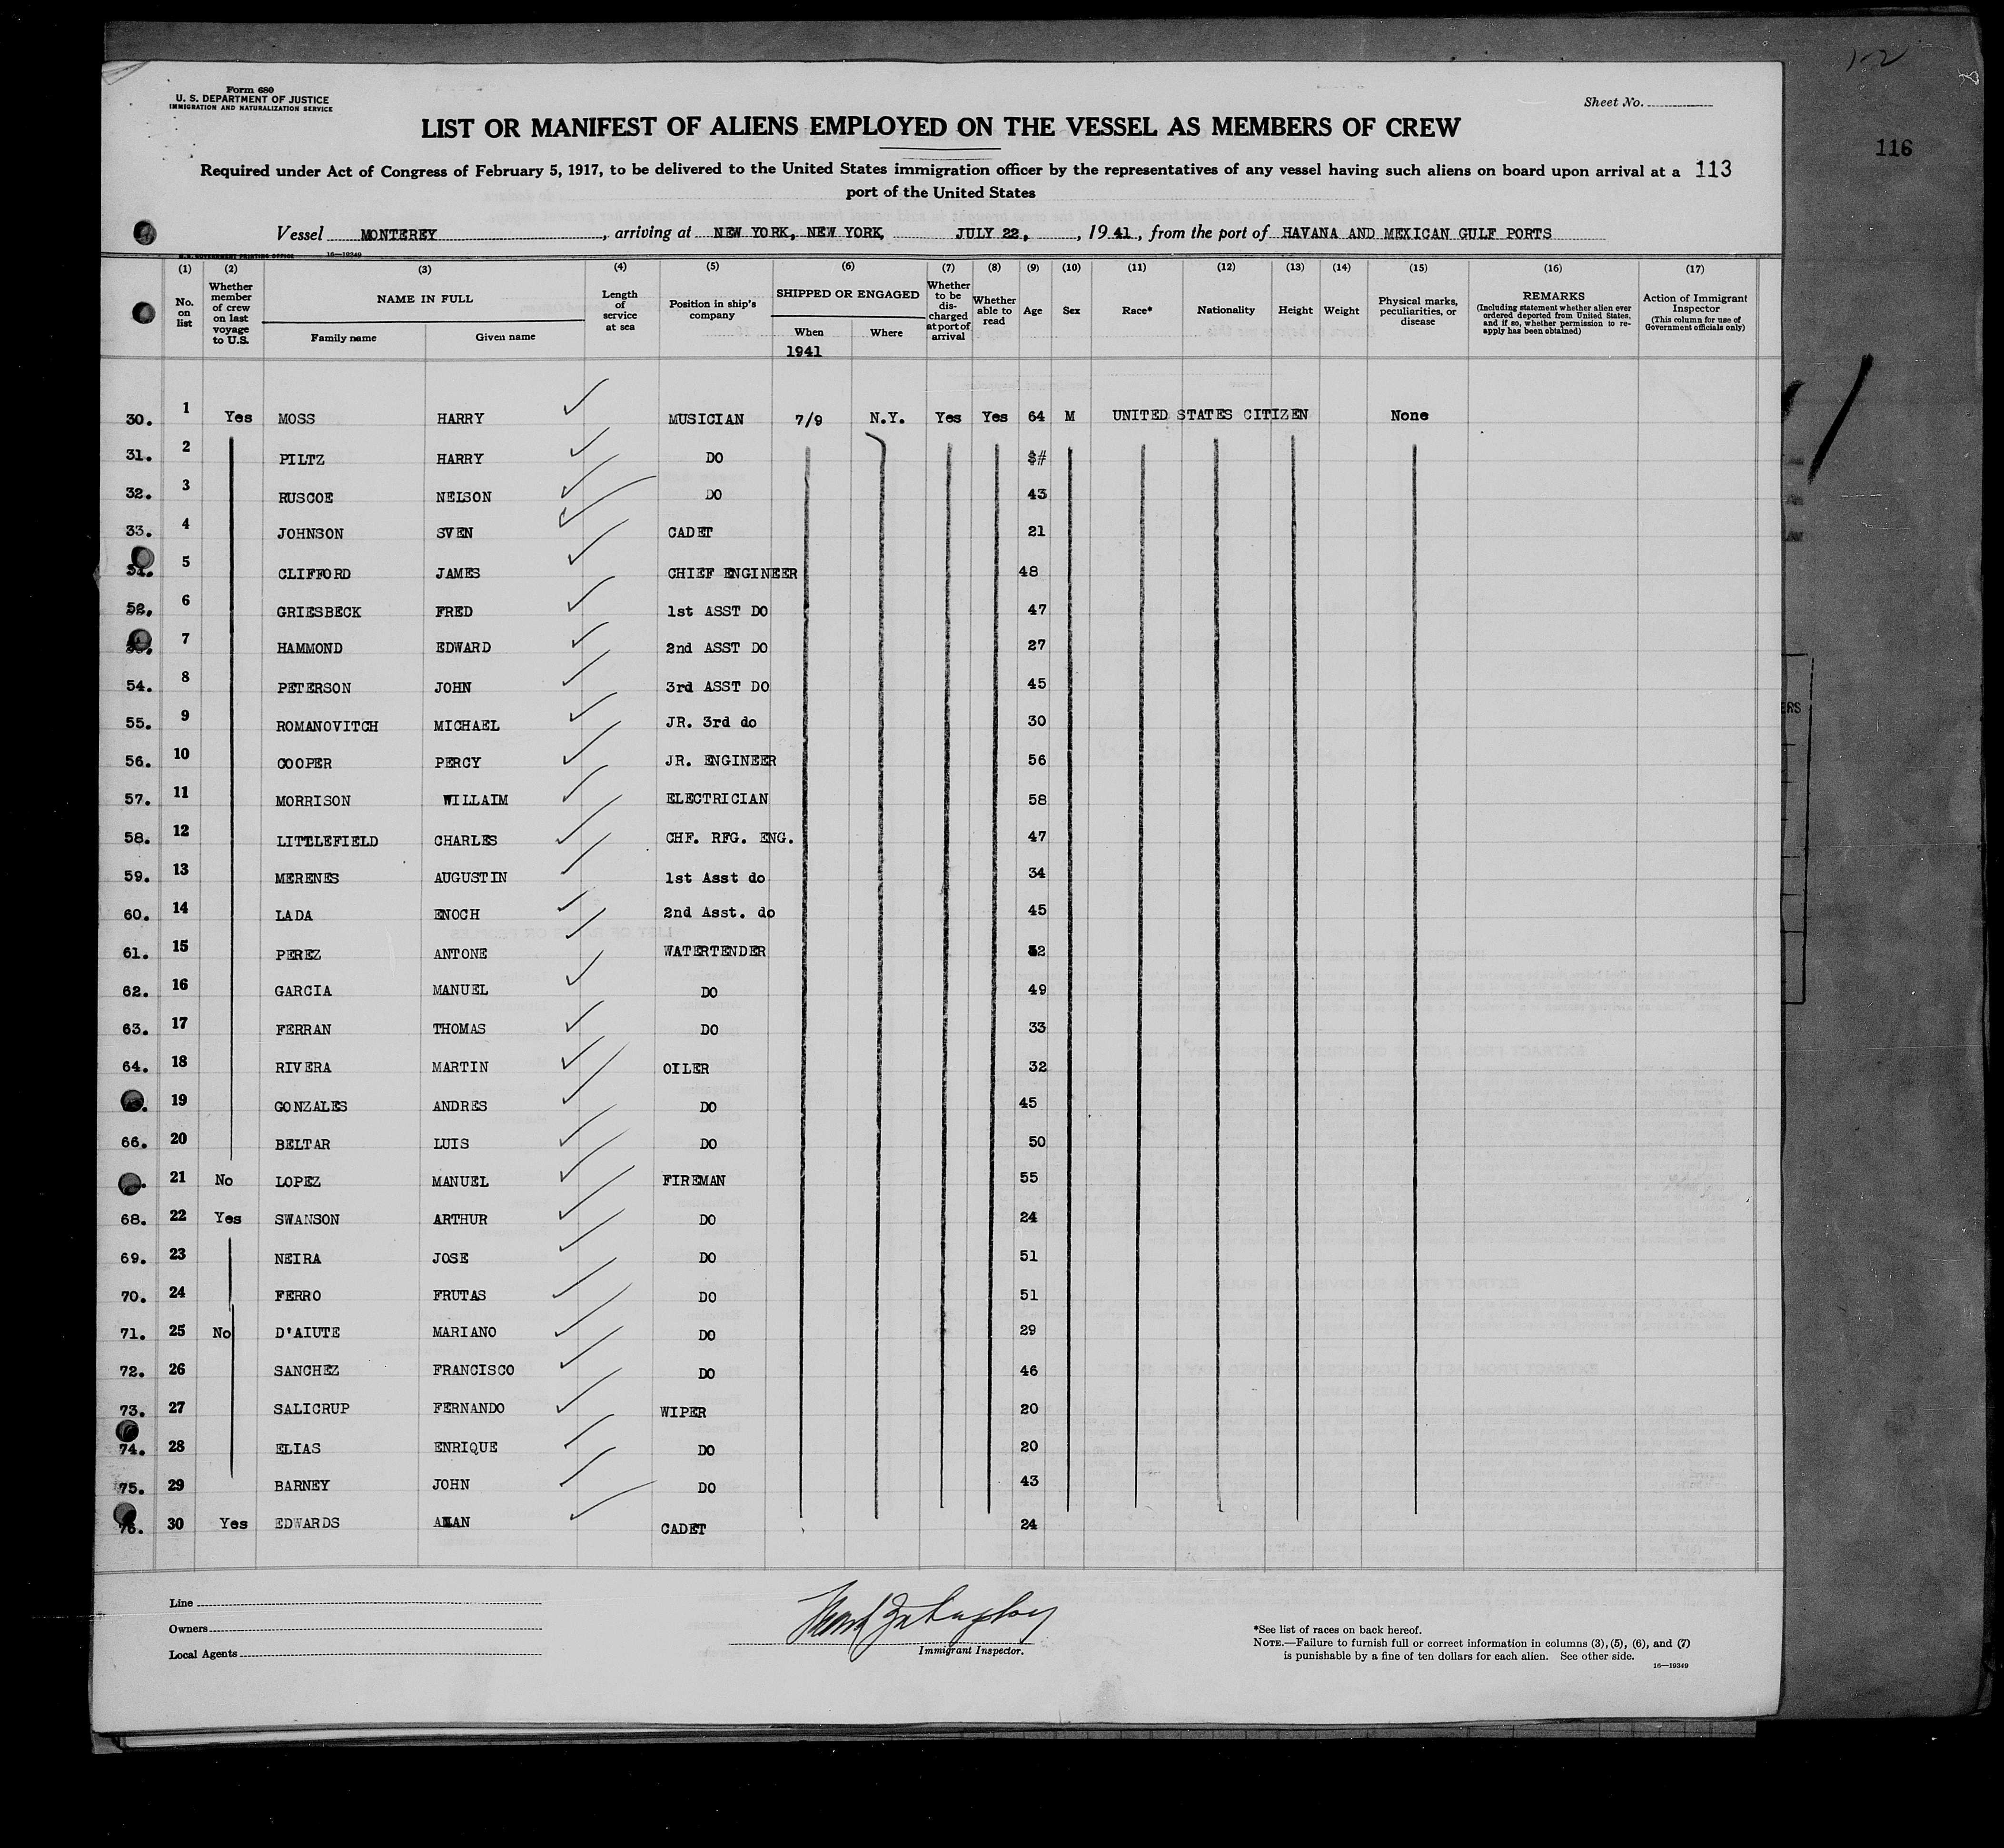 1-2
116
Form 680
U. S. DEPARTMENT OF JUSTICE
IMMIGRATION AND NATURALIZATION SERVICE
Sheet No.
LIST OR MANIFEST OF ALIENS EMPLOYED ON THE VESSEL AS MEMBERS OF CREW
Required under Act of Congress of February 5, 1917, to be delivered to the United States immigration officer by the representatives of any vessel having such aliens on board upon arrival at a 113
port of the United States
Vessel MONTEREY, arriving at NEW YORK, NEW YORK, JULY 22, , 1941, from the port of HAVANA AND MEXICAN GULF PORTS
U.S. GOVERNMENT PRINTING OFFICE 16—19349
(1) (2) (3) (4) (5) (6) (7) (8) (9) (10) (11) (12) (13) (14) (15) (16) (17)
No. on list
Whether member of crew on last voyage to U.S.
NAME IN FULL
Family name Given name
Length of service at sea
Position in ship's company
SHIPPED OR ENGAGED
When Where
1941
Whether to be discharged at port of arrival
Whether able to read
Age
Sex
Race*
Nationality
Height
Weight
Physical marks, peculiarities, or disease
REMARKS
(Including statement whether alien ever ordered deported from United States, and if so, whether permission to re-apply has been obtained)
Action of Immigrant Inspector
(This column for use of Government officials only)
30. 1 Yes MOSS HARRY MUSICIAN 7/9 N.Y. Yes Yes 64 M UNITED STATES CITIZEN None
31. 2 PILTZ HARRY DO
32. 3 RUSCOE NELSON DO 43
33. 4 JOHNSON SVEN CADET 21
5 CLIFFORD JAMES CHIEF ENGINEER 48
52. 6 GRIESBECK FRED 1st ASST DO 47
7 HAMMOND EDWARD 2nd ASST DO 27
54. 8 PETERSON JOHN 3rd ASST DO 45
55. 9 ROMANOVITCH MICHAEL JR. 3rd do 30
56. 10 COOPER PERCY JR. ENGINEER 56
57. 11 MORRISON WILLAIM ELECTRICIAN 58
58. 12 LITTLEFIELD CHARLES CHF. RFG. ENG. 47
59. 13 MERENES AUGUSTIN 1st Asst do 34
60. 14 LADA ENOCH 2nd Asst. do 45
61. 15 PEREZ ANTONE WATERTENDER
62. 16 GARCIA MANUEL DO 49
63. 17 FERRAN THOMAS DO 33
64. 18 RIVERA MARTIN OILER 32
19 GONZALES ANDRES DO 45
66. 20 BELTAR LUIS DO 50
21 No LOPEZ MANUEL FIREMAN 55
68. 22 Yes SWANSON ARTHUR DO 24
69. 23 NEIRA JOSE DO 51
70. 24 FERRO FRUTAS DO 51
71. 25 No D'AIUTE MARIANO DO 29
72. 26 SANCHEZ FRANCISCO DO 46
73. 27 SALICRUP FERNANDO WIPER 20
74. 28 ELIAS ENRIQUE DO 20
75. 29 BARNEY JOHN DO 43
76. 30 Yes EDWARDS CADET 24
Line
Owners
Local Agents
Immigrant Inspector.
*See list of races on back hereof.
NOTE.—Failure to furnish full or correct information in columns (3), (5), (6), and (7)
is punishable by a fine of ten dollars for each alien. See other side.
16—19349